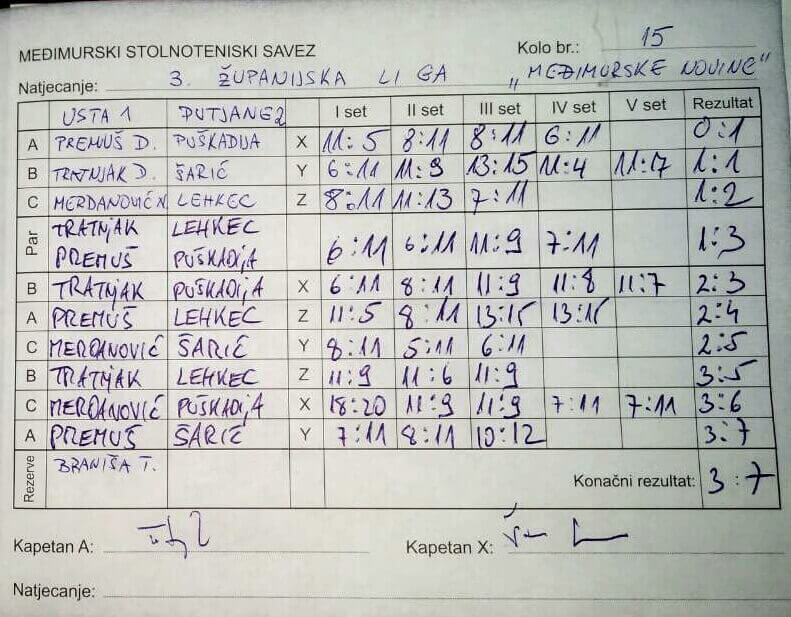 MEĐIMURSKI STOLNOTENISKI SAVEZ Kolo br.: 15
Natjecanje: 3. ŽUPANIJSKA LIGA „MEĐIMURSKE NOVINE“
USTA 1 PUTJANE 2 I set II set III set IV set V set Rezultat
A PREMUŠ D. PUŠKADIJA X 11:5 8:11 8:11 6:11 0:1
B TRATNJAK D. ŠARIĆ Y 6:11 11:9 13:15 11:4 11:17 1:1
C MERDANOVIĆ N LEHKEC Z 8:11 11:13 7:11 1:2
Par TRATNJAK LEHKEC
PREMUŠ PUŠKADIJA 6:11 6:11 11:9 7:11 1:3
B TRATNJAK PUŠKADIJA X 6:11 8:11 11:9 11:8 11:7 2:3
A PREMUŠ LEHKEC Z 11:5 8:11 13:15 13:15 2:4
C MERDANOVIĆ ŠARIĆ Y 8:11 5:11 6:11 2:5
B TRATNJAK LEHKEC Z 11:9 11:6 11:9 3:5
C MERDANOVIĆ PUŠKADIJA X 18:20 11:9 11:9 7:11 7:11 3:6
A PREMUŠ ŠARIĆ Y 7:11 8:11 10:12 3:7
Rezerve BRANIŠA T. Konačni rezultat: 3:7
Kapetan A: Kapetan X:
Natjecanje: